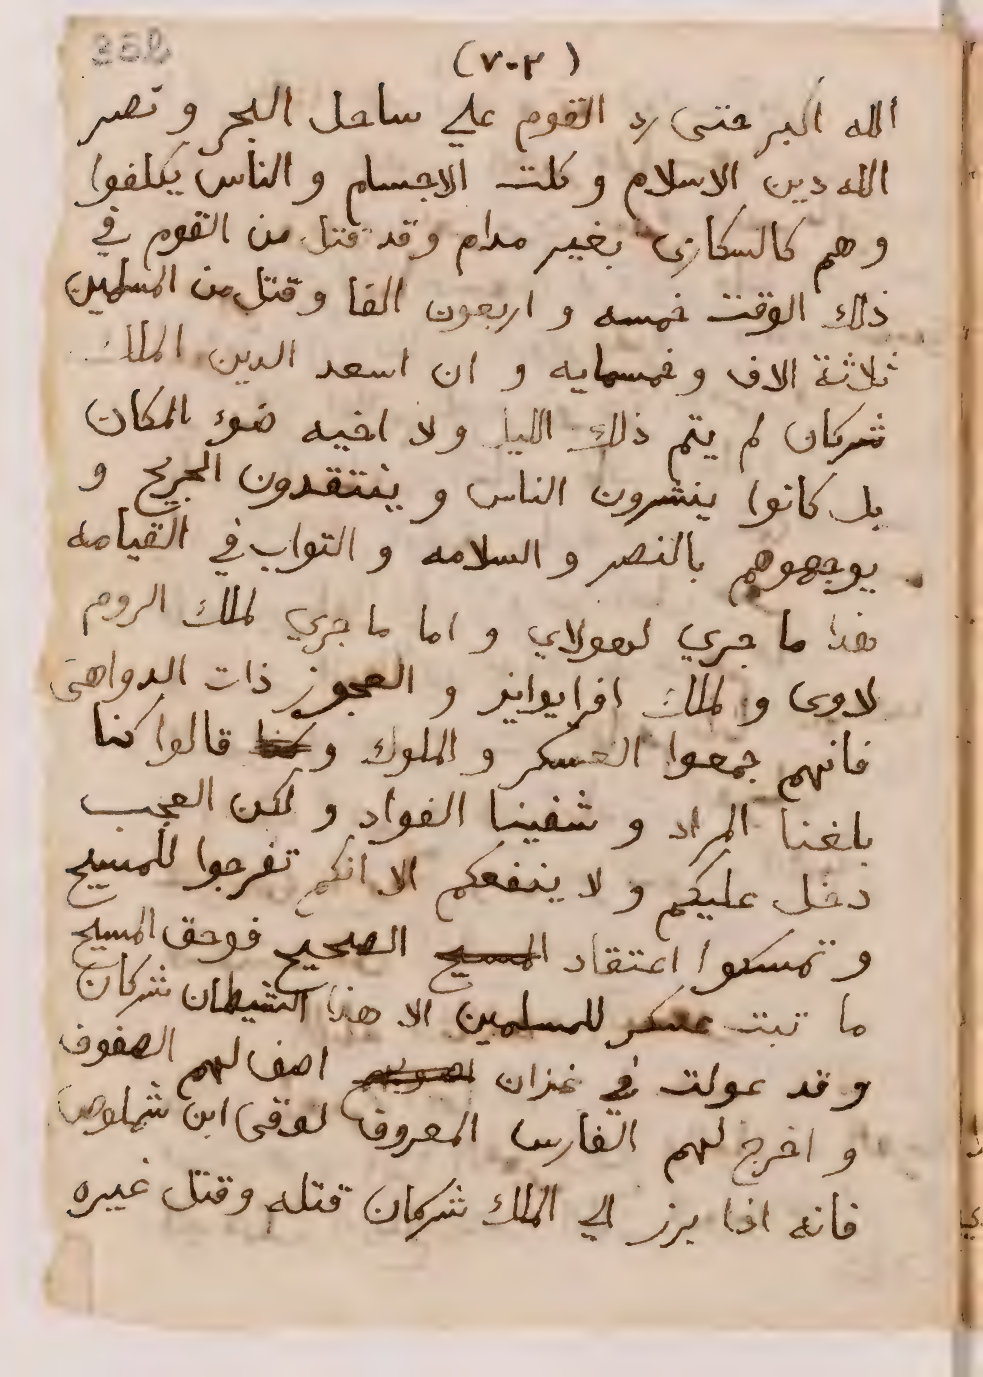 352
(٧٠٣)
الله اكبر حتى رد القوم علي ساحل البحر و نصر
الله دين الاسلام و كلت الاجسام و الناس يكلفوا
و هم كالسكارى بغير مدام و قد قتل من القوم في
ذلك الوقت خمسه و اربعون الفا و قتل من المسلمين
ثلاثة الاف و خمسمايه و ان اسعد الدين الملك
شركان لم يتم ذلك الليل و لا اخيه ضوء المكان
بل كانوا ينشرون الناس و ينتقدون الجريح و
يوجهوهم بالنصر و السلامه و التواب في القيامه
هذا ما جري لهولاي و اما ما جري لملك الروم
لاوى و لملك افرايوانز و العجوز ذات الدواهى
فانهم جمعوا العسكر و الملوك و كنا قالوا كنا
بلغنا المراد و شفينا الفواد و لكن العجب
دخل عليكم و لا ينفعكم الا انكم تفرجوا للمسيح
و تمسكوا اعتقاد المسيح الصحيح فوحق المسيح
ما تبت عسكر للمسلمين الا هذا الشيطان شركان
و قد عولت في غزان اصف لهم الصفوف
و اخرج لهم الفارس المعروف لوقى ابن شملوص
فانه اذا برز الي الملك شركان قتله و قتل غيره